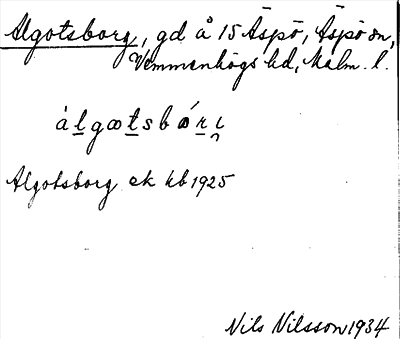 Algotsborg, gd å 15 Äspö, Äspö sn,
Vemmenhögs hd, Malm. l.
álgotsbóri
Algotsborg ek kb 1925
Nils Nilsson 1934